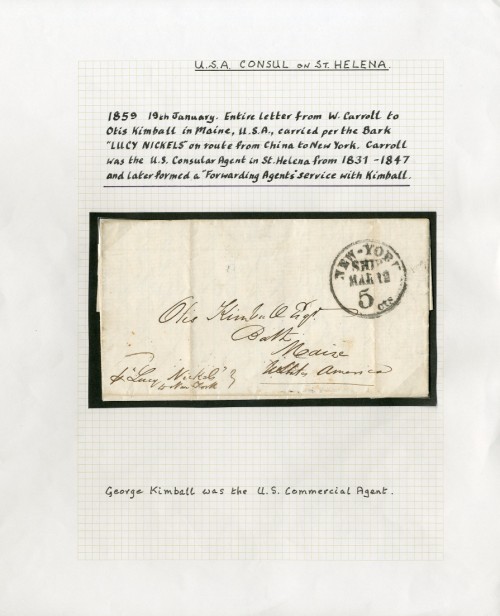 U.S.A. CONSUL ON ST. HELENA.
1859 19th January. Entire letter from W. Carroll to
Otis Kimball in Maine, U.S.A., carried per the Bark
"LUCY NICKELS" on route from China to New York. Carroll
was the U.S. Consular Agent in St. Helena from 1831 - 1847
and later formed a "Forwarding Agents" service with Kimball.
NEW-YORK
SHIP
MAR 12
5 cts
Otis Kimball Esqr.
Bath
Maine
America
"Lucy Nickels"
to New York
George Kimball was the U.S. Commercial Agent.